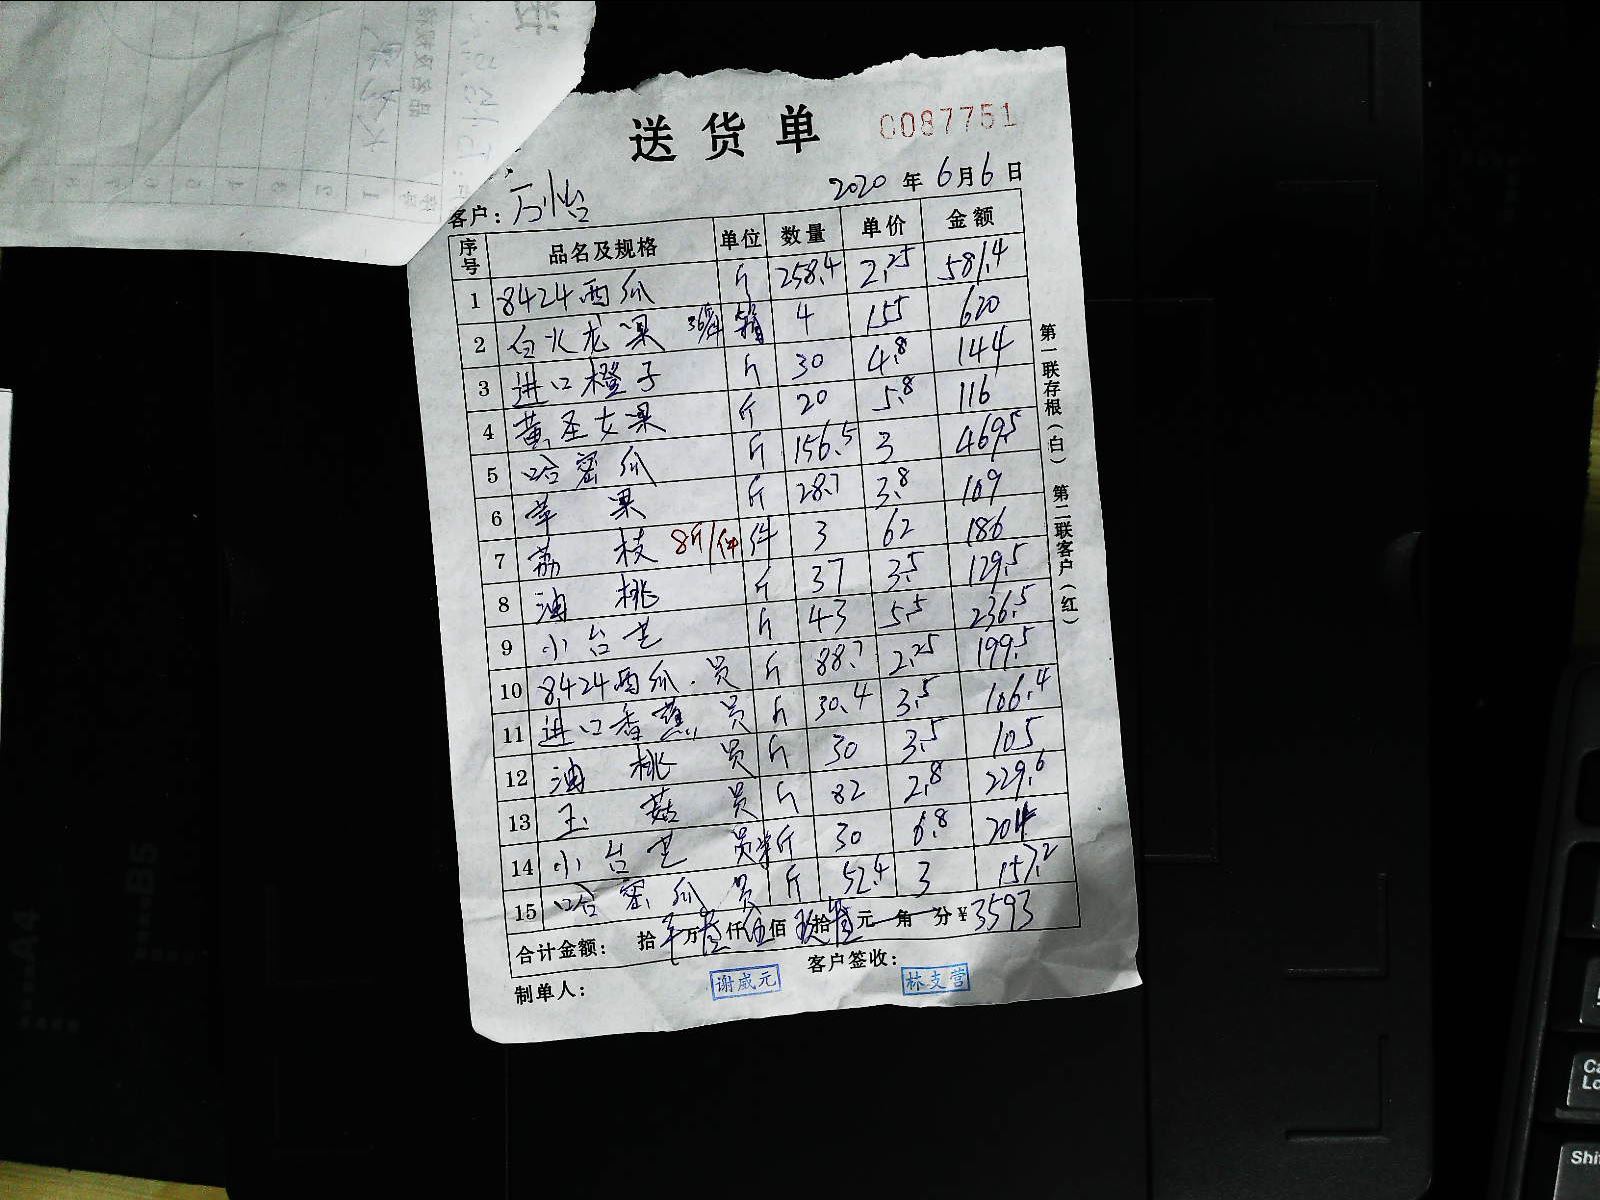 送货单 0087751
2020 年 6 月 6 日
客户：万怡
序号 品名及规格 单位 数量 单价 金额
1 8424西瓜 斤 258.4 2.25 581.4
2 白火龙果 36斤 箱 4 155 620
3 进口橙子 斤 30 4.8 144
4 黄圣女果 斤 20 5.8 116
5 哈密瓜 斤 156.5 3 469.5
6 苹果 斤 28.7 3.8 109
7 荔枝 8斤/件 件 3 62 186
8 油桃 斤 37 3.5 129.5
9 小台芒 斤 43 5.5 236.5
10 8424西瓜.员 斤 88.7 2.25 199.5
11 进口香蕉 员 斤 30.4 3.5 106.4
12 油桃 员 斤 30 3.5 105
13 玉菇 员 斤 82 2.8 229.6
14 小台芒 员 斤 30 6.8 204
15 哈密瓜 员 斤 52.4 3 157.2
合计金额： 拾 万 仟伍佰玖拾 元 角 分 ¥3593
制单人： 谢威元 客户签收： 林支营
第一联存根（白） 第二联客户（红）
A4
B5
Ca
Lo
Shi